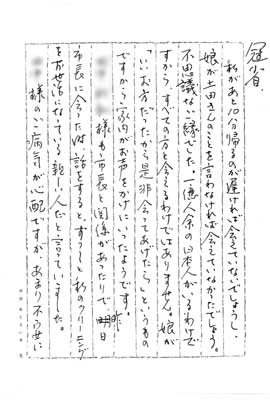 冠省
私があと10分帰るのが遅ければ会えていないでしょうし、
娘が土田さんのことを言わなければ会えていなかったでしょう。
不思議な縁でした。一億人余の日本人がいるわけで
すから、すべての方と会えるわけではありません。娘が
「いいお方だったから是非会ってあげたら」というもの
ですから、家内がお声をかけにいったようです。
様も市長と関係があったりで昨日
市長に会った時、話をすると、ずっと私のクリーニング
をお世話になっている親しい人だと言っていました。
様のご病気が心配ですが、あまり不安に